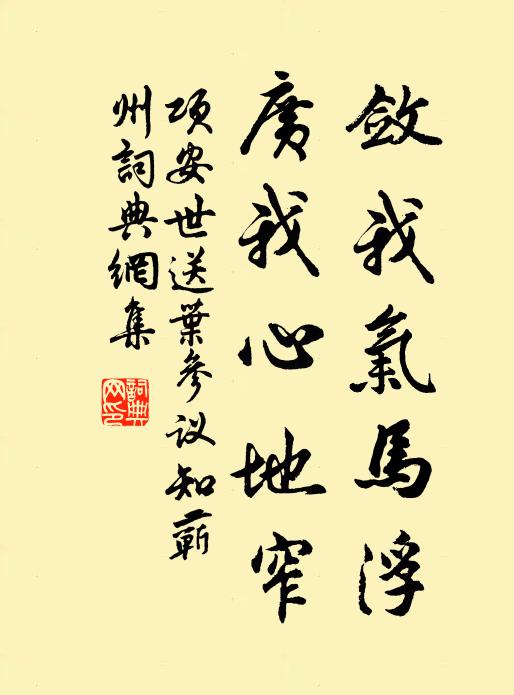 斂我氣馬浮
廣我心地窄
項安世送葉參议知蘄
州詞典網集
詞典网印